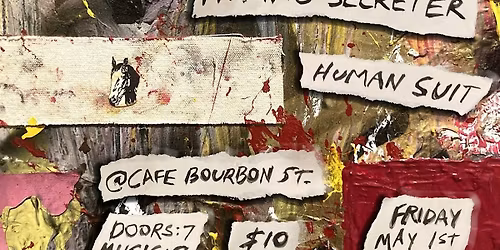 SECRETER
HUMAN SUIT
@CAFE BOURBON ST.
DOORS:7
$10
FRIDAY
MAY 1ST